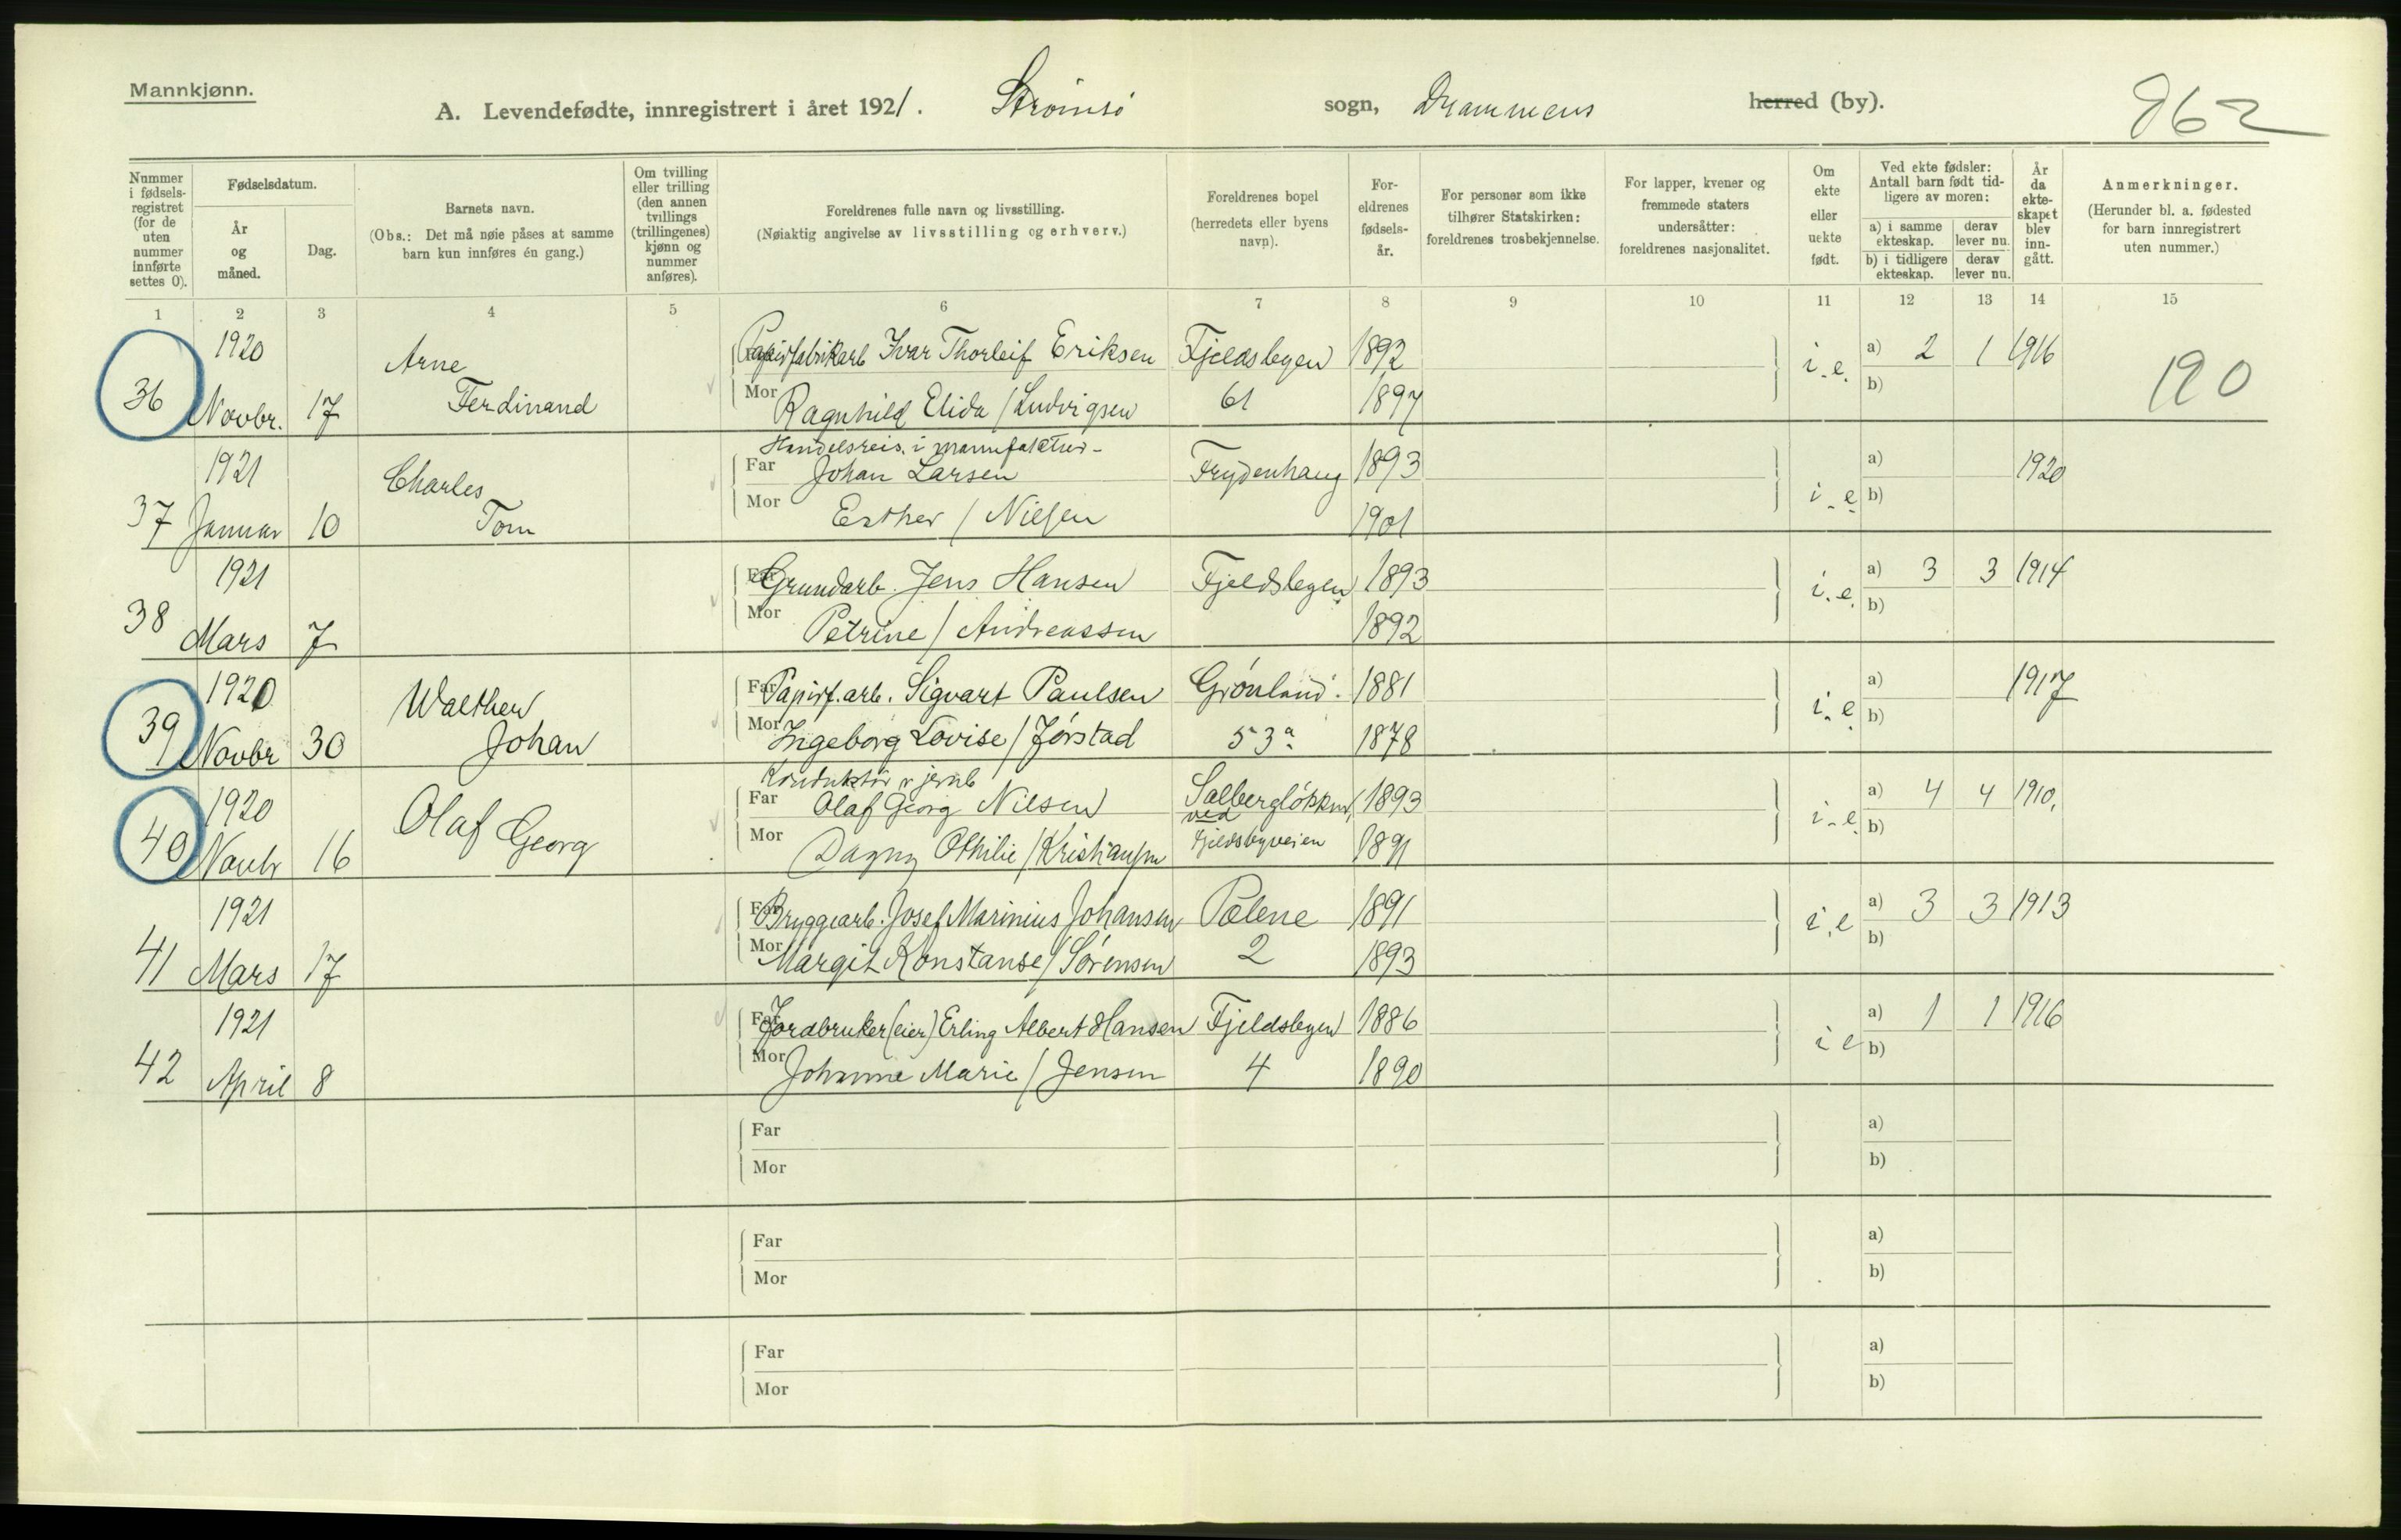 Mannkjønn.
A. Levendefødte, innregistrert i året 1921. Strømsø sogn, Drammens herred (by).
962
Nummer i fødselsregistret (for de uten nummer innførte settes 0).
Fødselsdatum.
År og måned.
Dag.
Barnets navn.
(Obs.: Det må nøie påses at samme barn kun innføres én gang.)
Om tvilling eller trilling (den annen tvillings (trillingenes) kjønn og nummer anføres).
Foreldrenes fulle navn og livsstilling.
(Nøiaktig angivelse av livsstilling og erhverv.)
Foreldrenes bopel (herredets eller byens navn).
Foreldrenes fødselsår.
For personer som ikke tilhører Statskirken: foreldrenes trosbekjennelse.
For lapper, kvener og fremmede staters undersåtter: foreldrenes nasjonalitet.
Om ekte eller uekte født.
Ved ekte fødsler: Antall barn født tidligere av moren:
a) i samme ekteskap. derav lever nu.
b) i tidligere ekteskap. derav lever nu.
År da ekteskapet blev inngått.
Anmerkninger.
(Herunder bl. a. fødested for barn innregistrert uten nummer.)
1 2 3 4 5 6 7 8 9 10 11 12 13 14 15
1920 Arne Papirfabrikarb Ivar Thorleif Eriksen Fjeldsbyen 1892 i.e. a) 2 1 1916
36 Novbr. 17 Ferdinand Mor Ragnhild Elida / Ludvigsen 61 1897 b) 190
Handelsreis. i manufaktur-
1921 Charles Far Johan Larsen Frydenhaug 1893 a) 1920
37 Januar 10 Tom Mor Esther / Nielsen 1901 i.e b)
1921 Far Grundarb. Jens Hansen Fjeldsbyen 1893 i.e. a) 3 3 1914
38 Mars 7 Mor Petrine / Andreassen 1892 b)
1920 Walther Far Papirf.arb. Sigvart Paulsen Grønland. 1881 i.e a) 1917
39 Novbr 30 Johan Mor Ingeborg Lovise / Jørstad 53a 1878 b)
Konduktør v jernb
1920 Olaf Georg Far Olaf Georg Nilsen Solbergløkken 1893 i.e a) 4 4 1910.
40 Novbr 16 Mor Dagny Othilie / Kristiansen ved Fjeldsbyveien 1891 b)
1921 Far Bryggearb. Josef Marinius Johansen Pælene 1891 i.e a) 3 3 1913
41 Mars 17 Mor Margit Konstanse / Sørensen 2 1893 b)
1921 Far Jordbruker (eier) Erling Albert Hansen Fjeldsbyen 1886 i e a) 1 1 1916
42 April 8 Mor Johanne Marie / Jensen 4 1890 b)
Far a)
Mor b)
Far a)
Mor b)
Far a)
Mor b)